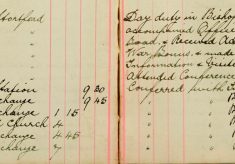 Stortford
"
"
"
"
Station 9 20
change 9 45
change 1 15
Church 4
change 4 45
change 7
Day duty in Bishop
accompanied Office
Road. & Received
War prisons. & made
Information &
Attended Conference
Conferred with
"
"
"
"